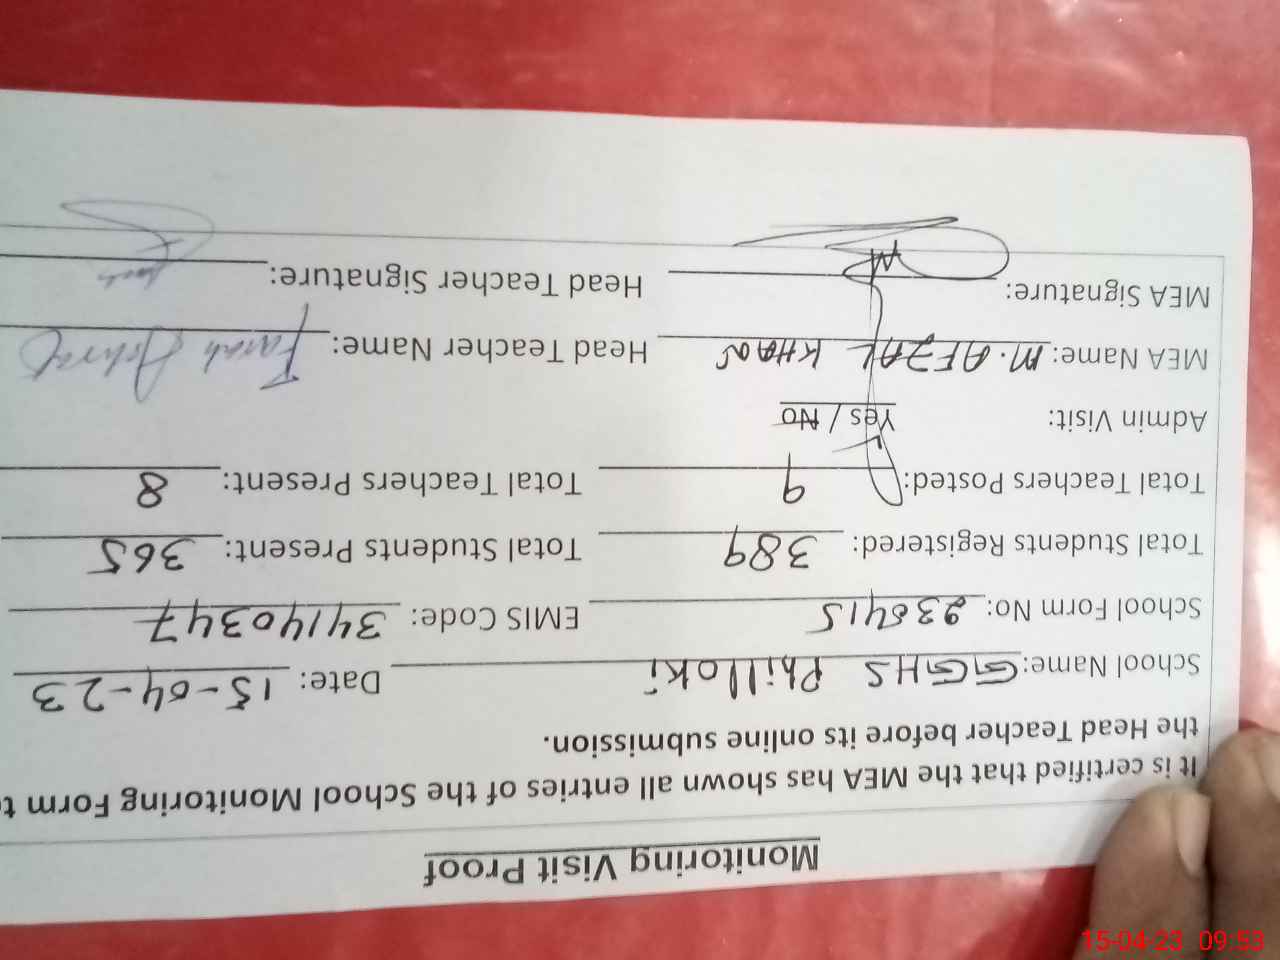 Monitoring Visit Proof
It is certified that the MEA has shown all entries of the School Monitoring Form t
the Head Teacher before its online submission.
School Name: GGHS Philloki Date: 15-04-23
School Form No: 2356415 EMIS Code: 34140347
Total Students Registered: 389 Total Students Present: 365
Total Teachers Posted: 9 Total Teachers Present: 8
Admin Visit: Yes / No
MEA Name: M. AFZAL KHAN Head Teacher Name: Farah Ashraf
MEA Signature: Head Teacher Signature: Farah
15-04-23 09:53